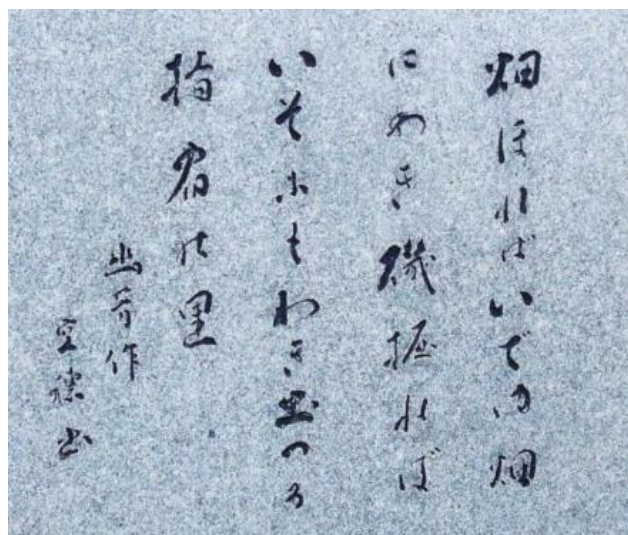 畑ほればいでゆ畑
にわき磯掘れば
いそにもわき出つる
指宿の里
幽芳作
書